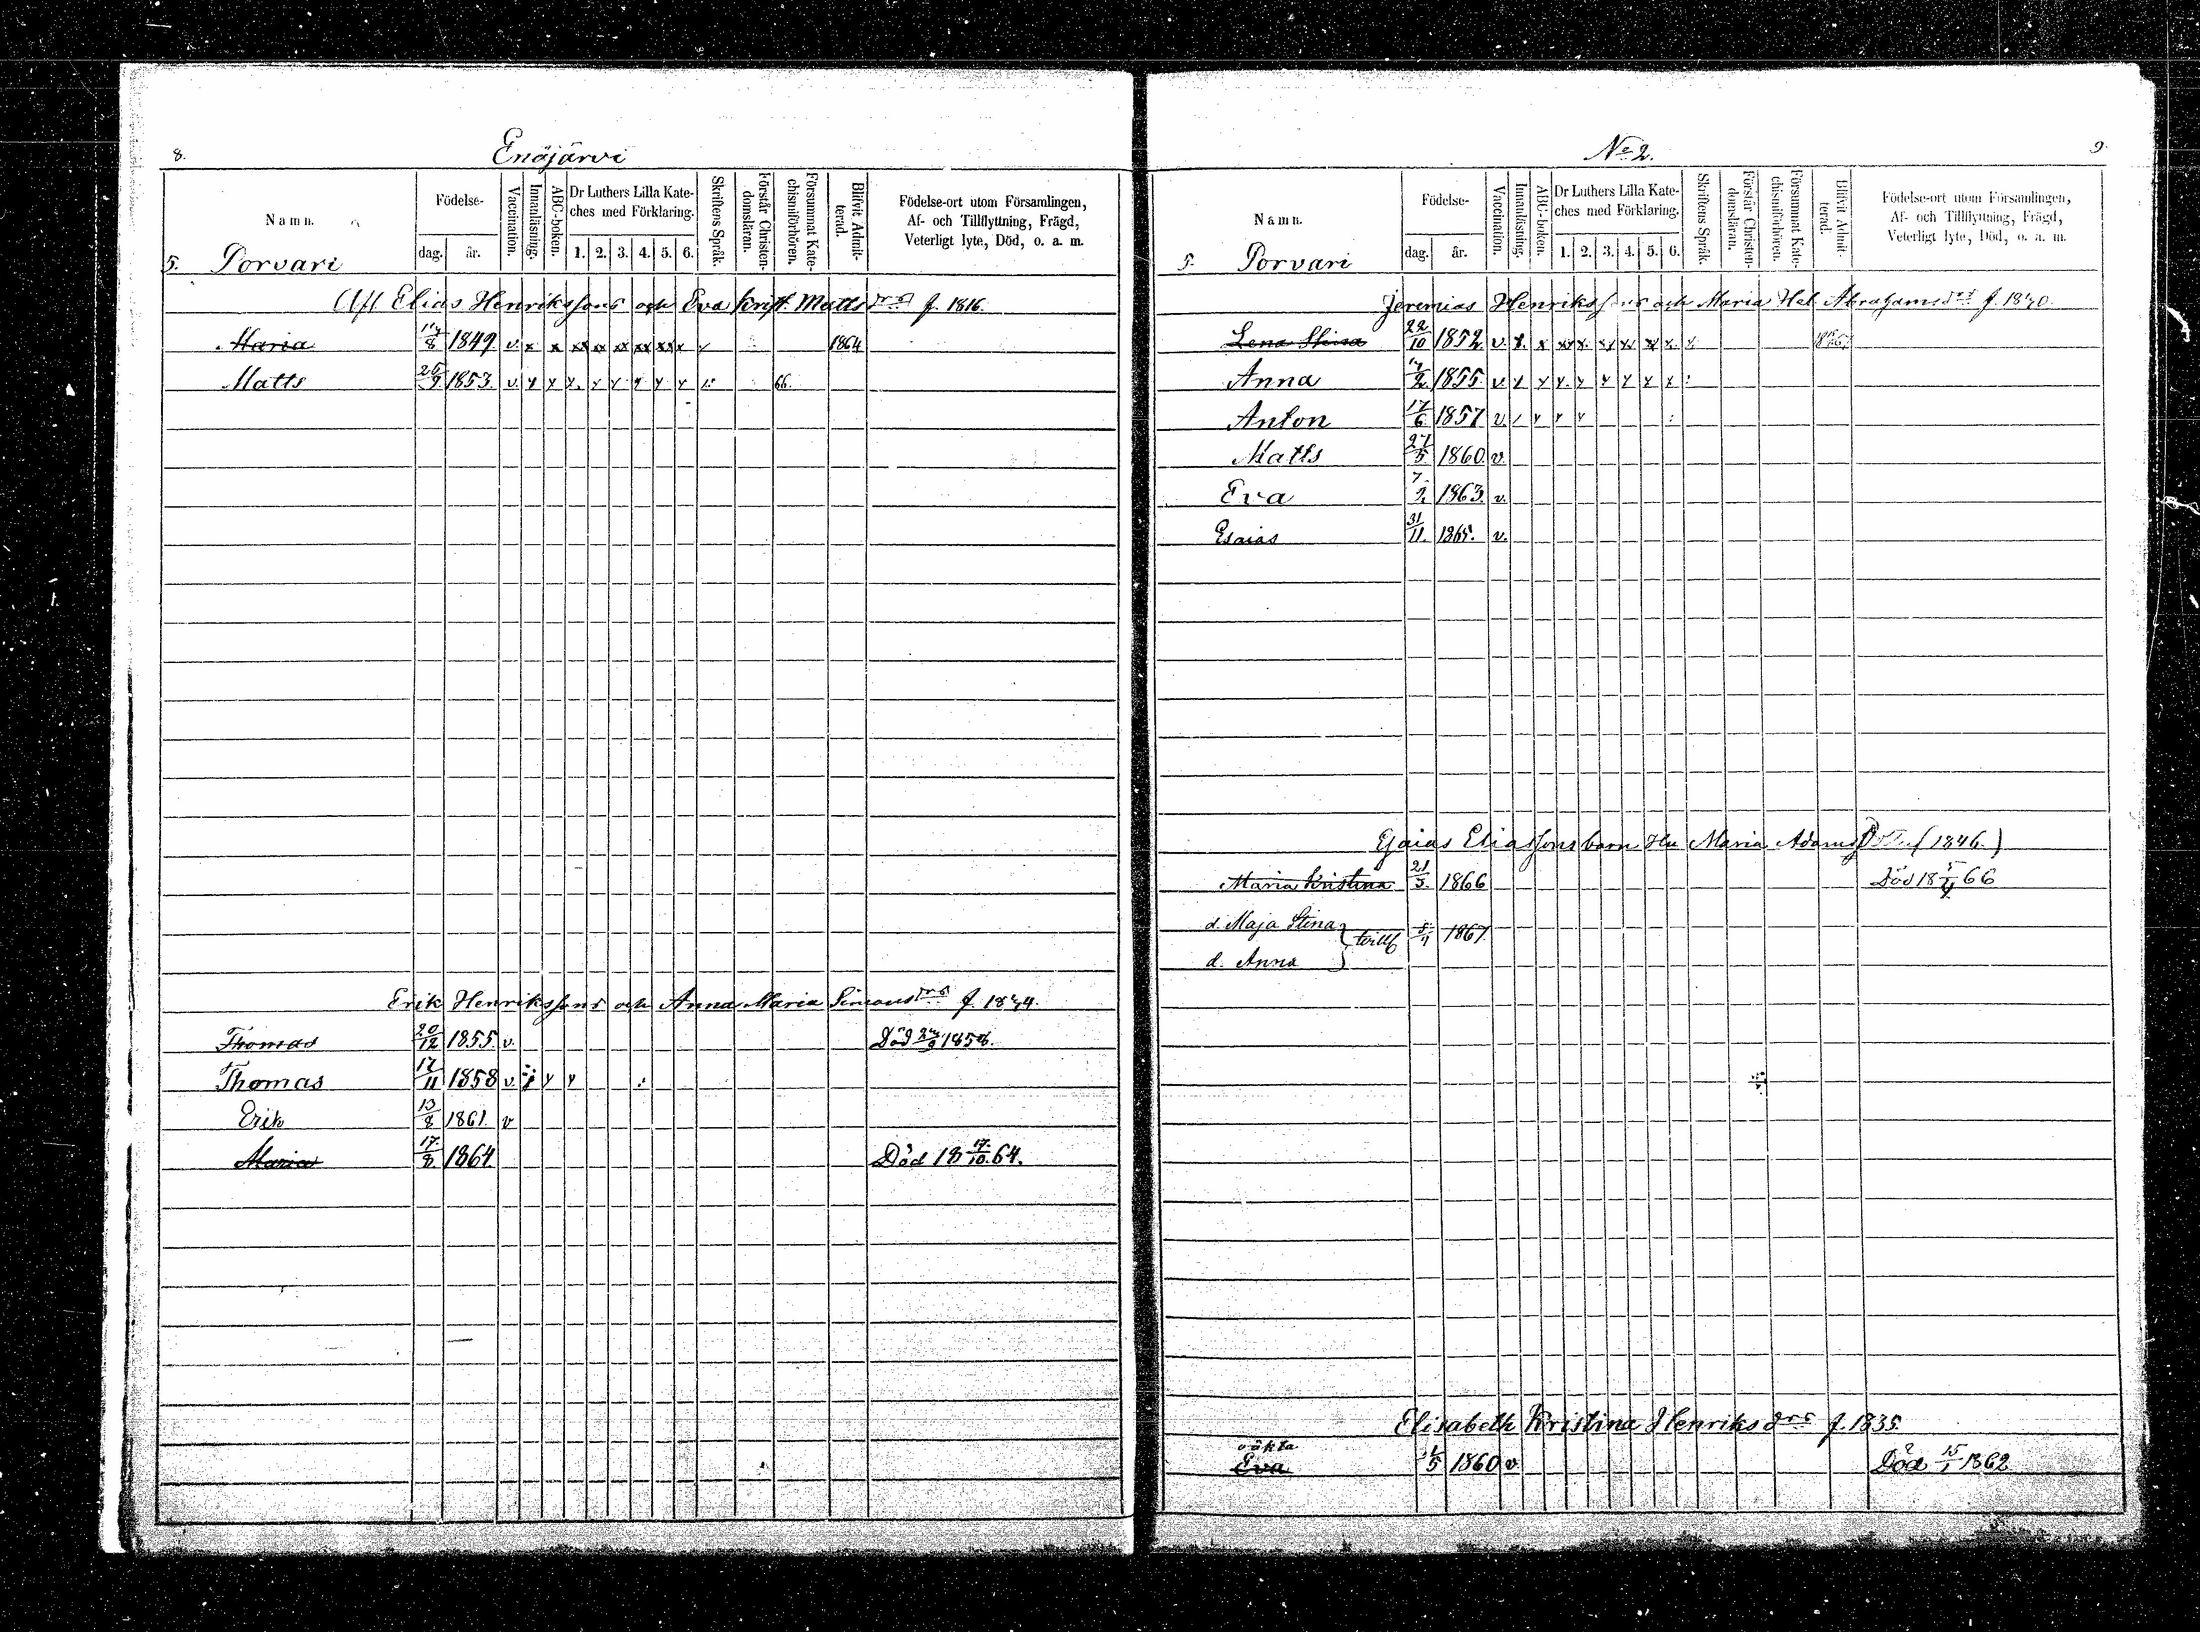 8.
Enäjärvi
Namn.
Födelse-
dag.
år.
Vaccination.
Innanläsning.
ABC-boken.
Dr Luthers Lilla Kate-
ches med Förklaring.
1. 2. 3. 4. 5. 6.
Skriftens Språk.
Förstår Christen-
domsläran.
Försummat Kate-
chismiförhören.
Blifvit Admit-
terad.
Födelse-ort utom Församlingen,
Af- och Tillflyttning, Frägd,
Veterligt lyte, Död, o. a. m.
5. Porvari
Elias Henrikssons och Eva Krist. Matts drs f. 1816.
Maria 8 1849 v. x x xx xx xx xx xx x 1864
Matts 9 1853 v. 66.
Erik Henrikssons och Anna Maria Simons drs
Thomas 20/12 1855 v. Död
Thomas 17/11 1858 v.
Erik 13/8 1861 v
Maria 17/8 1864 Död 18 17/10 64.
No 2.
9
Namn.
Födelse-
dag.
år.
Vaccination.
Innanläsning.
ABC-boken.
Dr Luthers Lilla Kate-
ches med Förklaring.
1. 2. 3. 4. 5. 6.
Skriftens Språk.
Förstår Christen-
domsläran.
Försummat Kate-
chismiförhören.
Blifvit Admit-
terad.
Födelse-ort utom Församlingen,
Af- och Tillflyttning, Frägd,
Veterligt lyte, Död, o. a. m.
5. Porvari
Jeremias Henrikssons och Maria Hel. Abrahams
Lena Stina 22/10 1852 v.
Anna 2 1855 v.
Anton 17/6 1857 v.
Matts 27/5 1860 v.
Eva 7 1863 v.
Esaias 31/11 1865. v.
Esaias Eliassons barn Hu Maria Adams (1846.)
Maria Kristina 21/3 1866 Död 18 66
d. Maja Stina
1867
d. Anna
Elisabeth Kristina Henriks drs f. 1835
oäkta
Eva 5 1860 v Död 15/1 1862